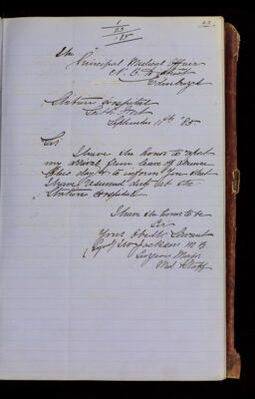 1
23
85
The
Principal Medical Officer
N. B. District
Edinburgh
Station Hospital
Leith Fort
September 11th 85
Sir
I have the honor to report
my arrival from leave of absence
this day & to inform you that
I have resumed duty at the
Station Hospital
I have the honor to be
Sir
Your Obedt Servant
(Sgd) Jackson M B
Surgeon Major
Med Staff